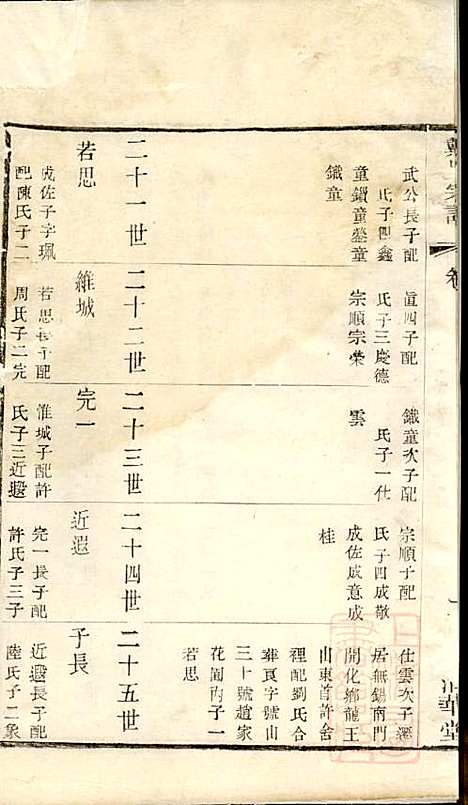 武公長子配
氏子四鑫
童鎖童鑾童
鐵童
眞四子配
氏子三慶德
宗順宗榮
鐵童次子配
氏子一仕
雲
宗順子配
氏子四成敬
成佐成意成
桂
仕雲次子遷
居無錫南門
開化鄉龍王
山東首許舍
裡配劉氏合
葬良字號山
三十號趙家
花園內子一
若思
二十一世
二十二世
二十三世
二十四世
二十五世
若思
維城
完一
近遐
子長
成佐子字珮
配陳氏子二
若思長子配
周氏子二完
維城子配許
氏子三近遐
完一長子配
許氏子三子
近遐長子配
陸氏子二象